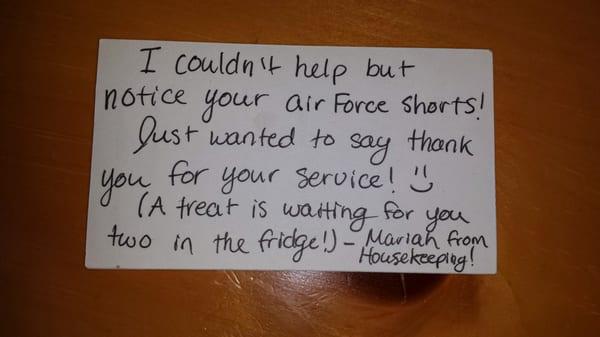 I couldn't help but
notice your air Force shorts!
Just wanted to say thank
you for your service! :)
(A treat is waiting for you
two in the fridge!) - Mariah from
Housekeeping!